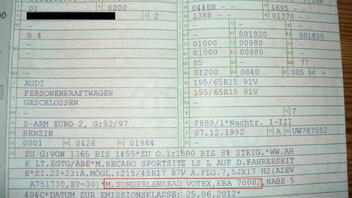 01 0200
0448B - 1695 -
2 138B - 01370 -
- - 001830 001830
B 4 01000 00980 -
01000 00980 -
85 - 77
- 01200 0640 005 -
AUDI 195/65R15 91V
PERSONENKRAFTWAGEN 195/65R15 91V
GESCHLOSSEN -
-
S-ARM EURO 2, G:92/97 F889/1*Nachtr. I-III
BENZIN 07.12.1992 AU W787552
0001 0426 01984
ZU G:VON 1365 BIS 1455*ZU O.1:1500 BIS 8% STEIG.*WW.AH
K LT.EGTG/ABE*M.RECARO SPORTSITZ LS L AUF D.FAHRERSEIT
E*ZI.22+23:A.MÖGL:215/45R17 87V A.FLG.7,5JX17 H2(AZEV
A751730,ET=30)*M.SONDERLENKRAD VOTEX,KBA 70082,NABE 5
404C*DATUM ZUR EMISSIONSKLASSE: 25.06.2012*